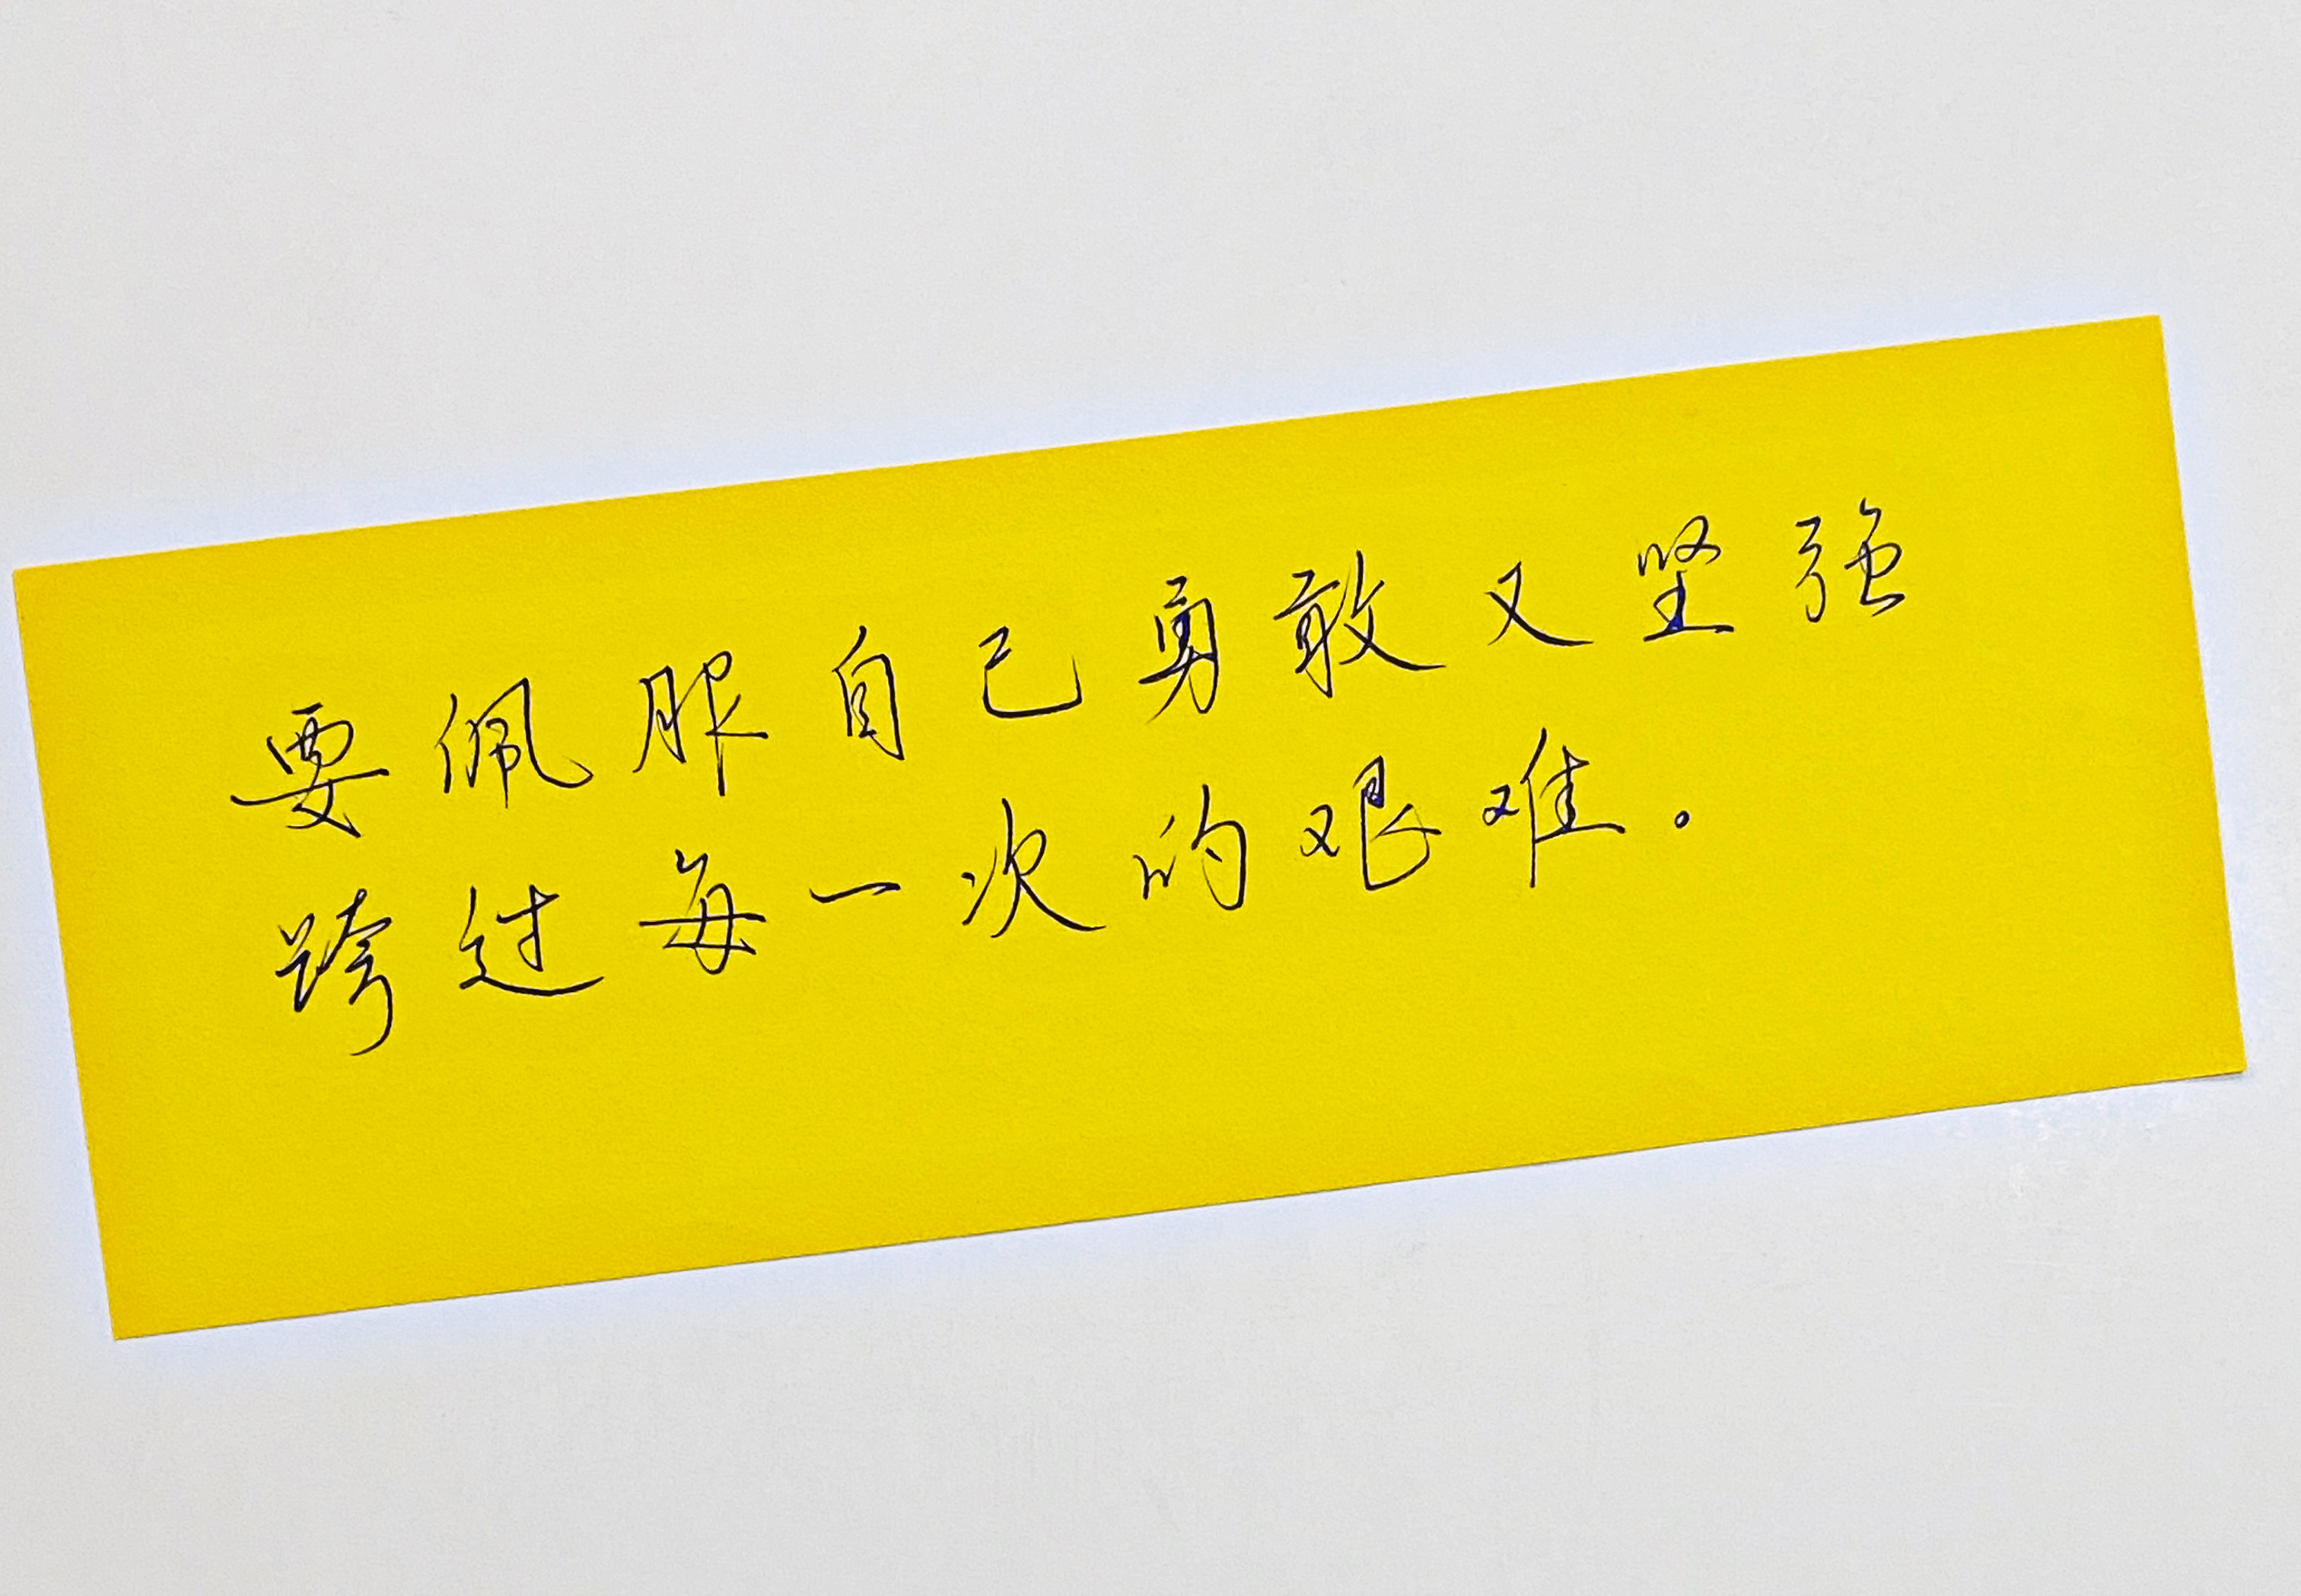 要佩服自己勇敢又坚强
跨过每一次的艰难。